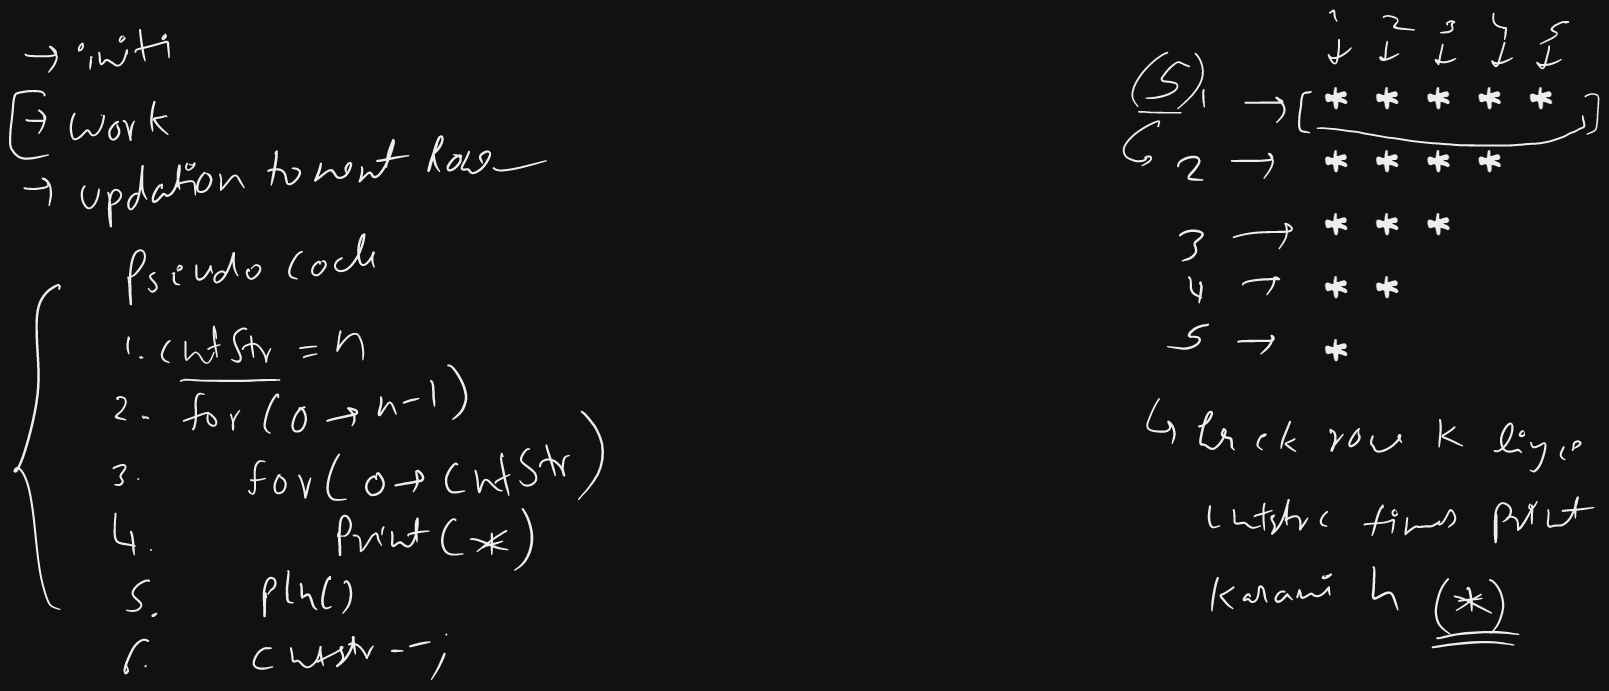 → initi
→ work
→ updation to next Row
Pseudo code
1. cntStr = n
2. for (0 → n-1)
3. for (0 → cntStr)
4. Print (*)
5. Pln()
6. cntstr--;
1 2 3 4 5
(5) 1 → [* * * * *]
2 → * * * *
3 → * * *
4 → * *
5 → *
↳ row K liye
cntstr times print
Karani h (*)